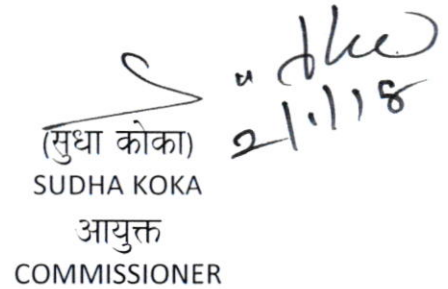 2/1/18
(सुधा कोका)
SUDHA KOKA
आयुक्त
COMMISSIONER